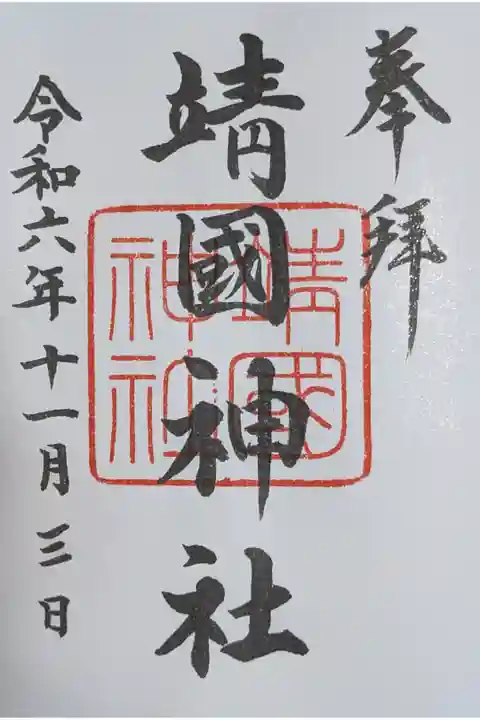 奉拝
靖國神社
靖國
神社
令和六年十一月三日